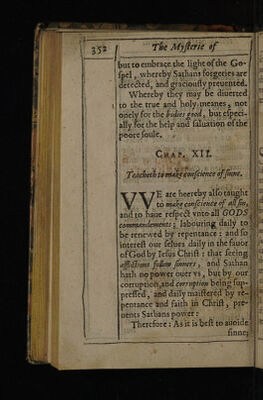 352
The Mysterie of
but to embrace the light of the Go-
spel, whereby Sathans forgeries are
detected, and graciously preuented.
Whereby they may be diuerted
to the true and holy meanes, not
onely for the bodies good, but especi-
ally for the help and saluation of the
poore soule.
CHAP. XII.
Teacheth to make conscience of sinne.
VVE are heereby also taught
to make conscience of all sin,
and to haue respect vnto all GODS
commandements; labouring daily to
be renewed by repentance: and so
interest our selues daily in the fauor
of God by Iesus Christ: that seeing
afflictions follow sinners, and Sathan
hath no power ouer vs, but by our
corruption, and corruption being sup-
pressed, and daily maistered by re-
pentance and faith in Christ, pre-
uents Sathans power:
Therefore: As it is best to auoide
sinne;